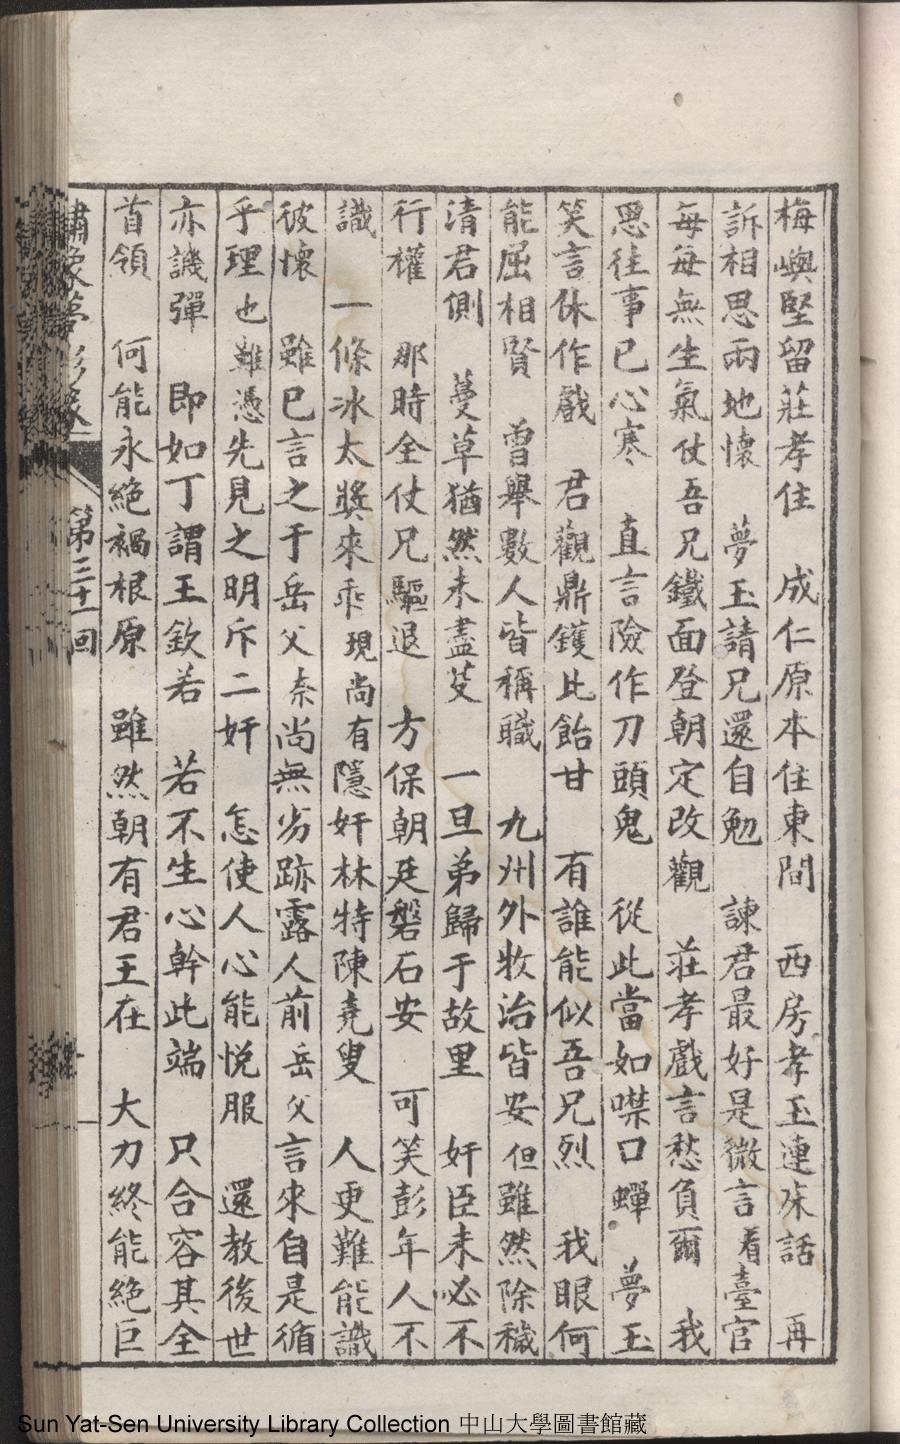 梅嶼堅留莊孝住　成仁原本住東間　西房孝玉連床話　再
訴相思兩地懷　夢玉請兄還自勉　諫君最好是微言看臺官
每每無生氣仗吾兄鐵面登朝定改觀　莊孝戲言愁負爾　我
思往事已心寒　直言險作刀頭鬼　從此當如噤口蟬　夢玉
笑言休作戲　君觀鼎鑊比飴甘　有誰能似吾兄烈　我眼何
能屈相賢　曾舉數人皆稱職　九州外牧治皆安但雖然除穢
清君側　蔓草猶然未盡芟　一旦弟歸于故里　奸臣未必不
行權　那時全仗兄驅退　方保朝廷磐石安　可笑彭年人不
識　一條冰太獎來乖現尚有隱奸林特陳堯叟　人更難能識
彼懷　雖已言之于岳父柰尚無劣跡露人前岳父言來自是循
乎理也雖憑先見之明斥二奸　怎使人心能悦服　還教後世
亦譏彈　即如丁謂王欽若　若不生心幹此端　只合容其全
首領　何能永絕禍根原　雖然朝有君王在　大刀終能絕巨
繡像夢影緣　第三十一回
Sun Yat-Sen University Library Collection 中山大學圖書館藏